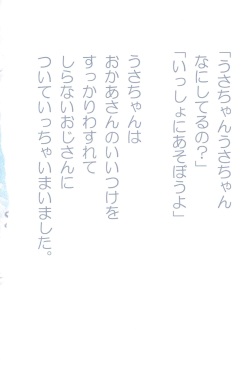 「うさちゃんうさちゃん
なにしてるの?」
「いっしょにあそぼうよ」
うさちゃんは
おかあさんのいいつけを
すっかりわすれて
しらないおじさんに
ついていっちゃいまいました。